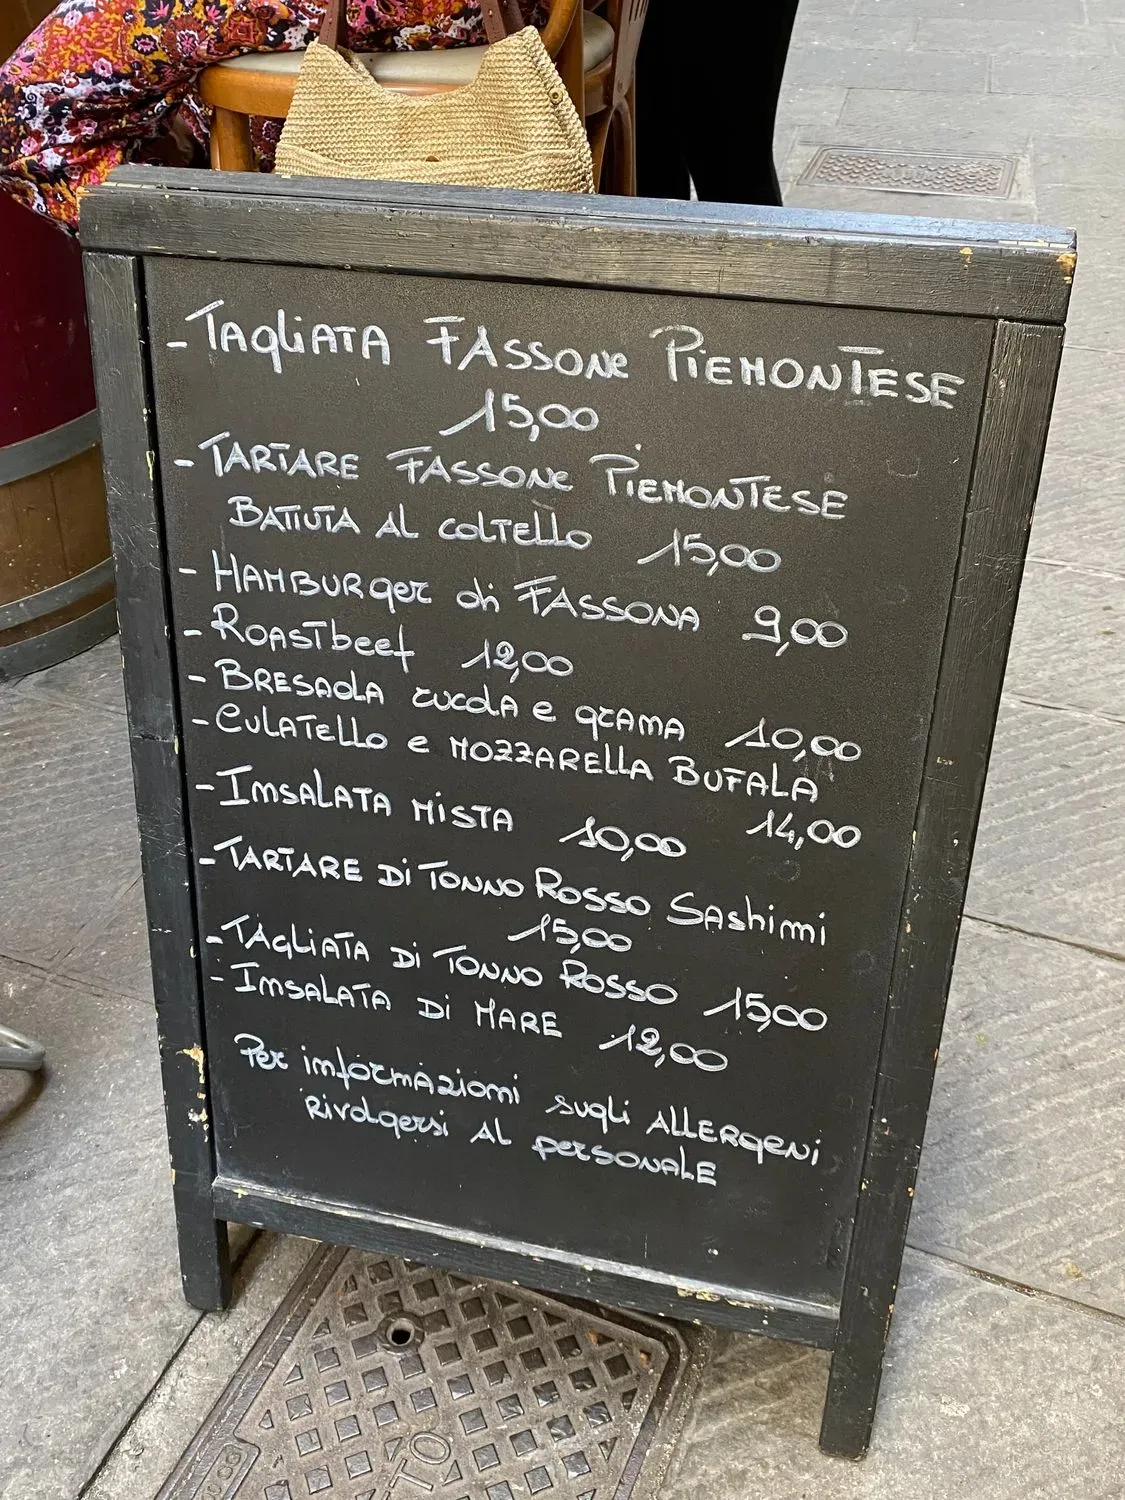 - TAGLIATA FASSONE PIEMONTESE
15,00
- TARTARE FASSONE PIEMONTESE
BATTUTA AL COLTELLO 15,00
- HAMBURGER di FASSONA 9,00
- ROASTbeef 12,00
- BRESAOLA rucola e grama 10,00
- CULATELLO e MOZZARELLA BUFALA
14,00
- INSALATA MISTA 10,00
- TARTARE Di TONNO ROSSO Sashimi
15,00
- TAGLIATA Di TONNO ROSSO 15,00
- INSALATA Di MARE 12,00
Per informazioni sugli ALLERGENi
Rivolgersi AL personALE
TO